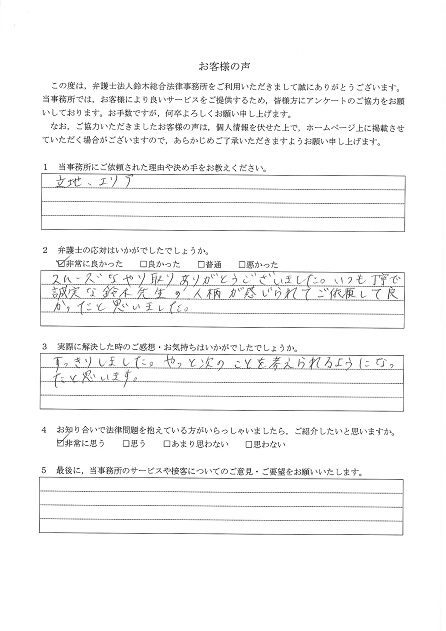 お客様の声
この度は、弁護士法人鈴木総合法律事務所をご利用いただきまして誠にありがとうございます。
当事務所では、お客様により良いサービスをご提供するため、皆様方にアンケートのご協力をお願
いしております。お手数ですが、何卒よろしくお願い申し上げます。
なお、ご協力いただきましたお客様の声は、個人情報を伏せた上で、ホームページ上に掲載させ
ていただく場合がございますので、あらかじめご了承いただきますようお願い申し上げます。
1 当事務所にご依頼された理由や決め手をお教えください。
立地、エリア
2 弁護士の応対はいかがでしたでしょうか。
☑非常に良かった □良かった □普通 □悪かった
スムーズなやり取りありがとうございました。いつも丁寧で
誠実な鈴木先生の人柄が感じられてご依頼して良
かったと思いました。
3 実際に解決した時のご感想・お気持ちはいかがでしたでしょうか。
すっきりしました。やっと次のことを考えられるようになっ
たと思います。
4 お知り合いで法律問題を抱えている方がいらっしゃいましたら、ご紹介したいと思いますか。
☑非常に思う □思う □あまり思わない □思わない
5 最後に、当事務所のサービスや接客についてのご意見・ご要望をお願いいたします。